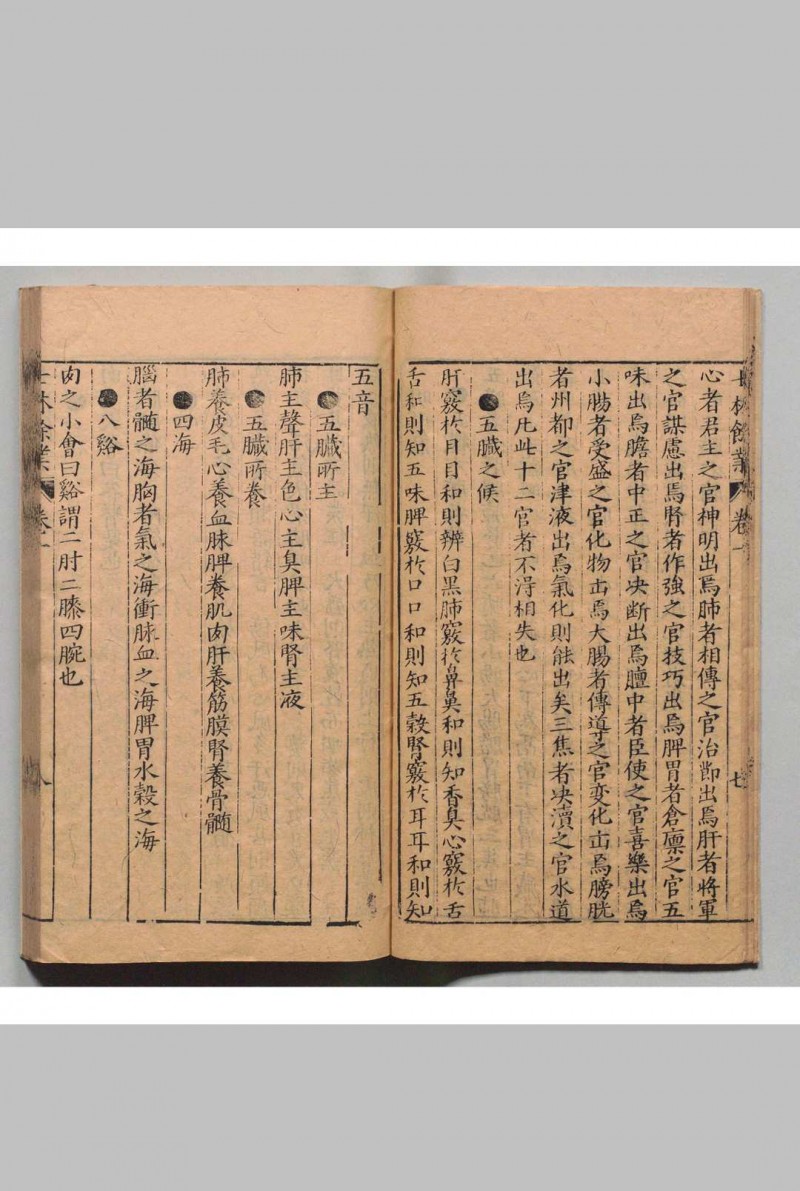 心者君主之官神明出焉肺者相傳之官治節出焉肝者將軍
之官謀慮出焉腎者作強之官技巧出焉脾胃者倉廪之官五
味出焉膽者中正之官决斷出焉膻中者臣使之官喜樂出焉
小腸者受盛之官化物出焉大腸者傳導之官变化出焉膀胱
者州都之官津液出焉氣化則能出矣三焦者决瀆之官水道
出焉凡此十二官者不淂相失也
●五臟之候
肝竅於目目和則辨白黑肺竅於鼻鼻和則知香臭心竅於舌
舌和則知五味脾竅於口口和則知五穀腎竅於耳耳和則知
卷一
七
五音
●五臟所主
肺主聲肝主色心主臭脾主味腎主液
●五臟所養
肺養皮毛心養血脉脾養肌肉肝養筋膜腎養骨髓
●四海
腦者髓之海胸者氣之海衝脉血之海脾胃水穀之海
●八谿
肉之小會曰谿謂二肘二膝四腕也
士林餘業
八